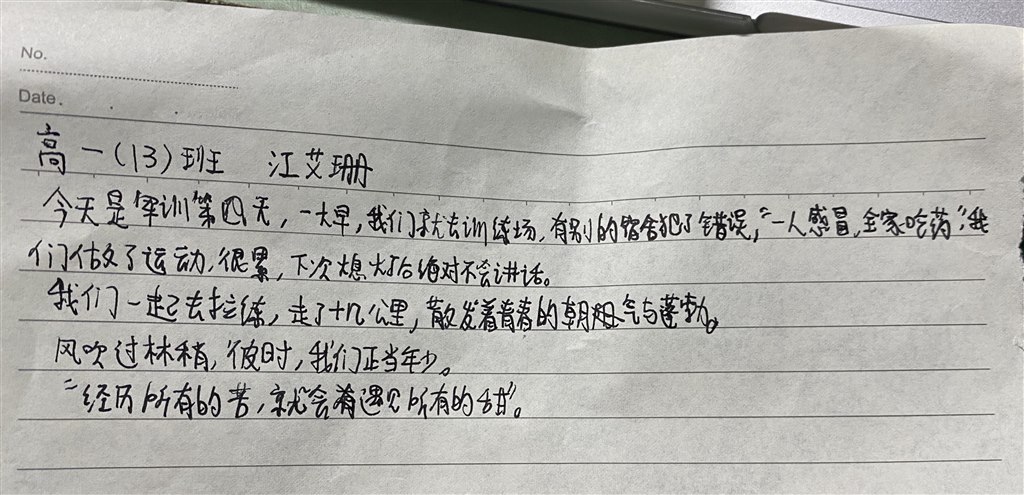 No.
Date.
高一(13)班 江艾珊
今天是军训第四天,一大早,我们就去训练场,有别的宿舍犯了错误,“一人感冒,全家吃药”,我
们做了运动,很累,下次熄灯后绝对不会讲话。
我们一起去拉练,走了十几公里,散发着青春的朝气与蓬勃。
风吹过林稍,彼时,我们正当年少。
“经历所有的苦,就会着遇见所有的甜”。